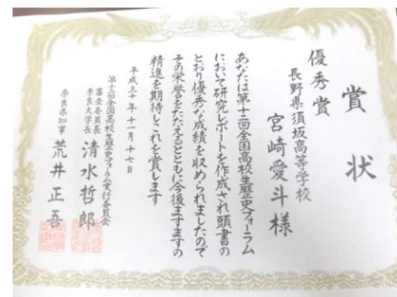 賞状
優秀賞
長野県須坂高等学校
宮崎愛斗様
あなたは第十二回全国高校生歴史フォーラム
において研究レポートを作成され頭書の
とおり優秀な成績を収められましたので
その栄誉をたたえるとともに今後ますますの
精進を期待しこれを賞します
平成三十年十一月十七日
第十二回全国高校生歴史フォーラム実行委員会
審査委員長
奈良大学長 清水哲郎
奈良県知事 荒井正吾